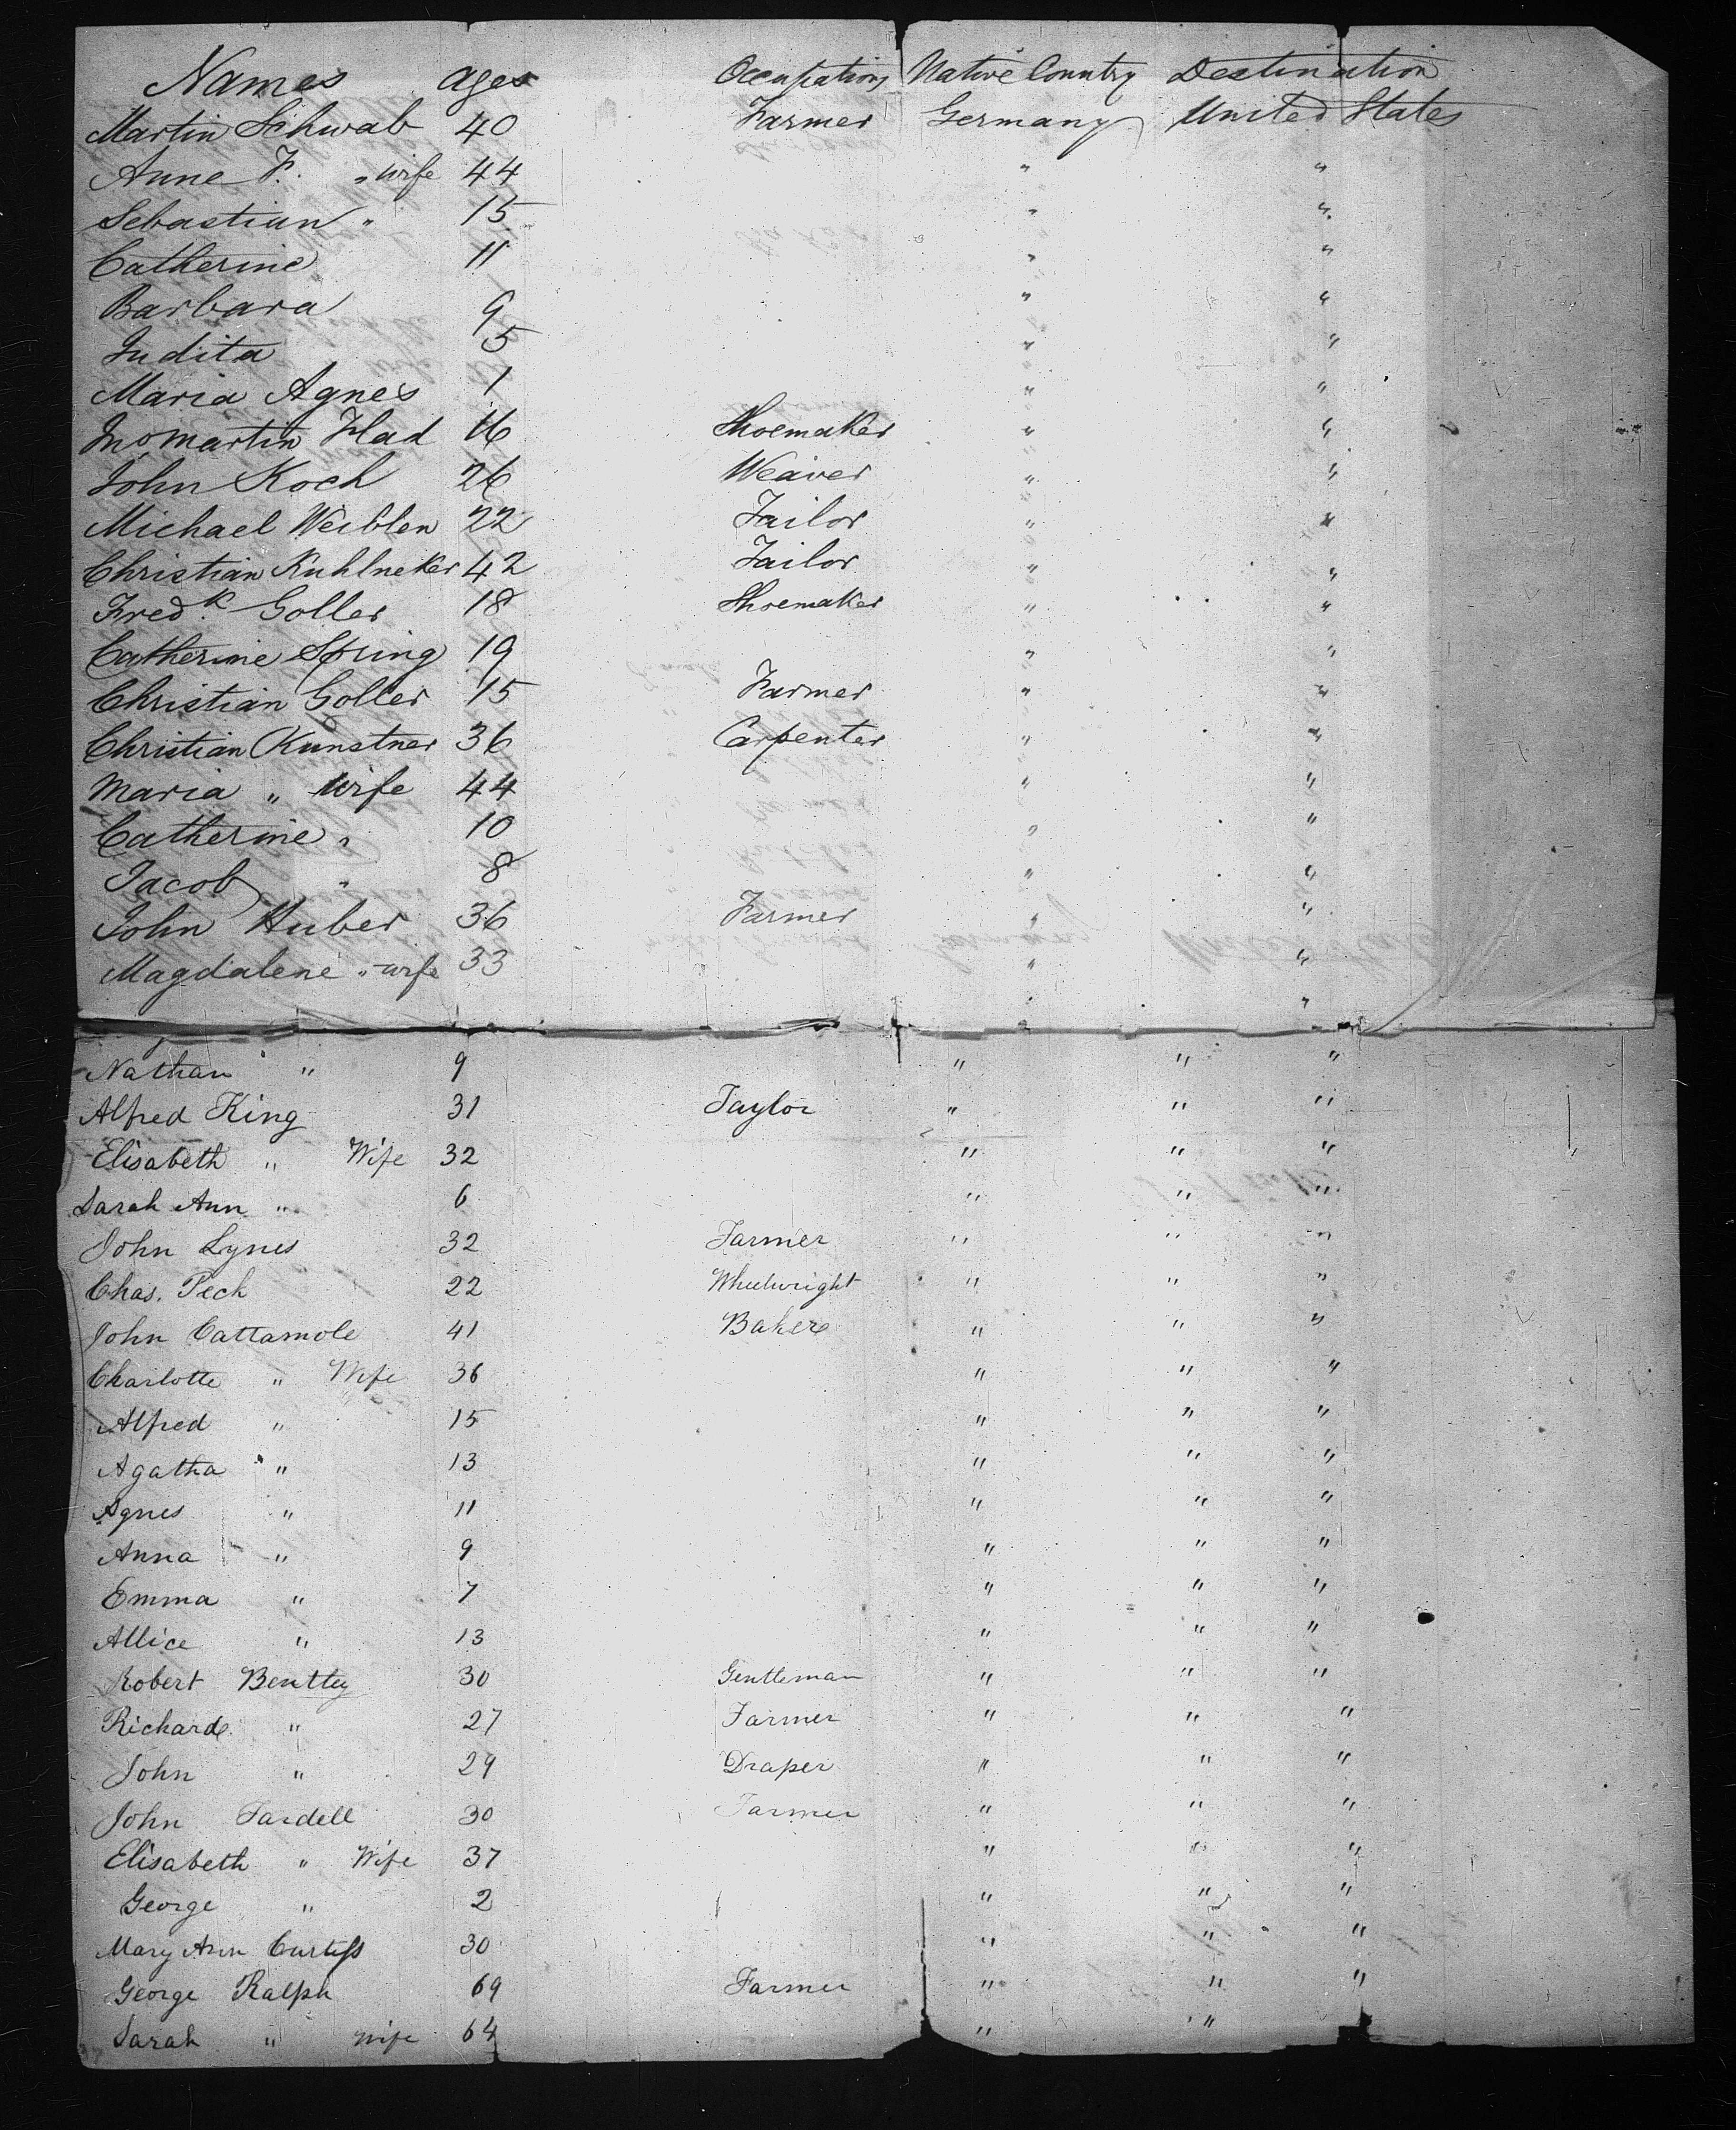 Names Ages Occupations Native Country Destination
Martin Schwab 40 Farmer Germany United States
Anne F. " wife 44 " "
Sebastian " 15 " "
Catherine 11 " "
Barbara 9 " "
Judita 5 " "
Maria Agnes 1 " "
Jno Martin Flad 16 Shoemaker " "
John Koch 26 Weaver " "
Michael Weiblen 22 Tailor " "
Christian Kuhlneker 42 Tailor " "
Fredk. Goller 18 Shoemaker " "
Catherine Spring 19 " "
Christian Goller 15 Farmer " "
Christian Kunstner 36 Carpenter " "
Maria " wife 44 " "
Catherine " 10 " "
Jacob " 8 " "
John Huber 36 Farmer " "
Magdalene " wife 33 " "
" "
Nathan " 9 " " "
Alfred King 31 Taylor " " "
Elisabeth " Wife 32 " " "
Sarah Ann " 6 " " "
John Lynes 32 Farmer " " "
Chas. Peck 22 Wheelwright " " "
John Cattamole 41 Baker " " "
Charlotte " Wife 36 " " "
Alfred " 15 " " "
Agatha " 13 " " "
Agnes " 11 " " "
Anna " 9 " " "
Emma " 7 " " "
Allice " 13 " " "
Robert Bentley 30 Gentleman " " "
Richard " 27 Farmer " " "
John " 29 Draper " " "
John Fardell 30 Farmer " " "
Elisabeth " Wife 37 " " "
George " 2 " " "
Mary Ann Curtiss 30 " " "
George Ralph 69 Farmer " " "
Sarah " wife 64 " " "